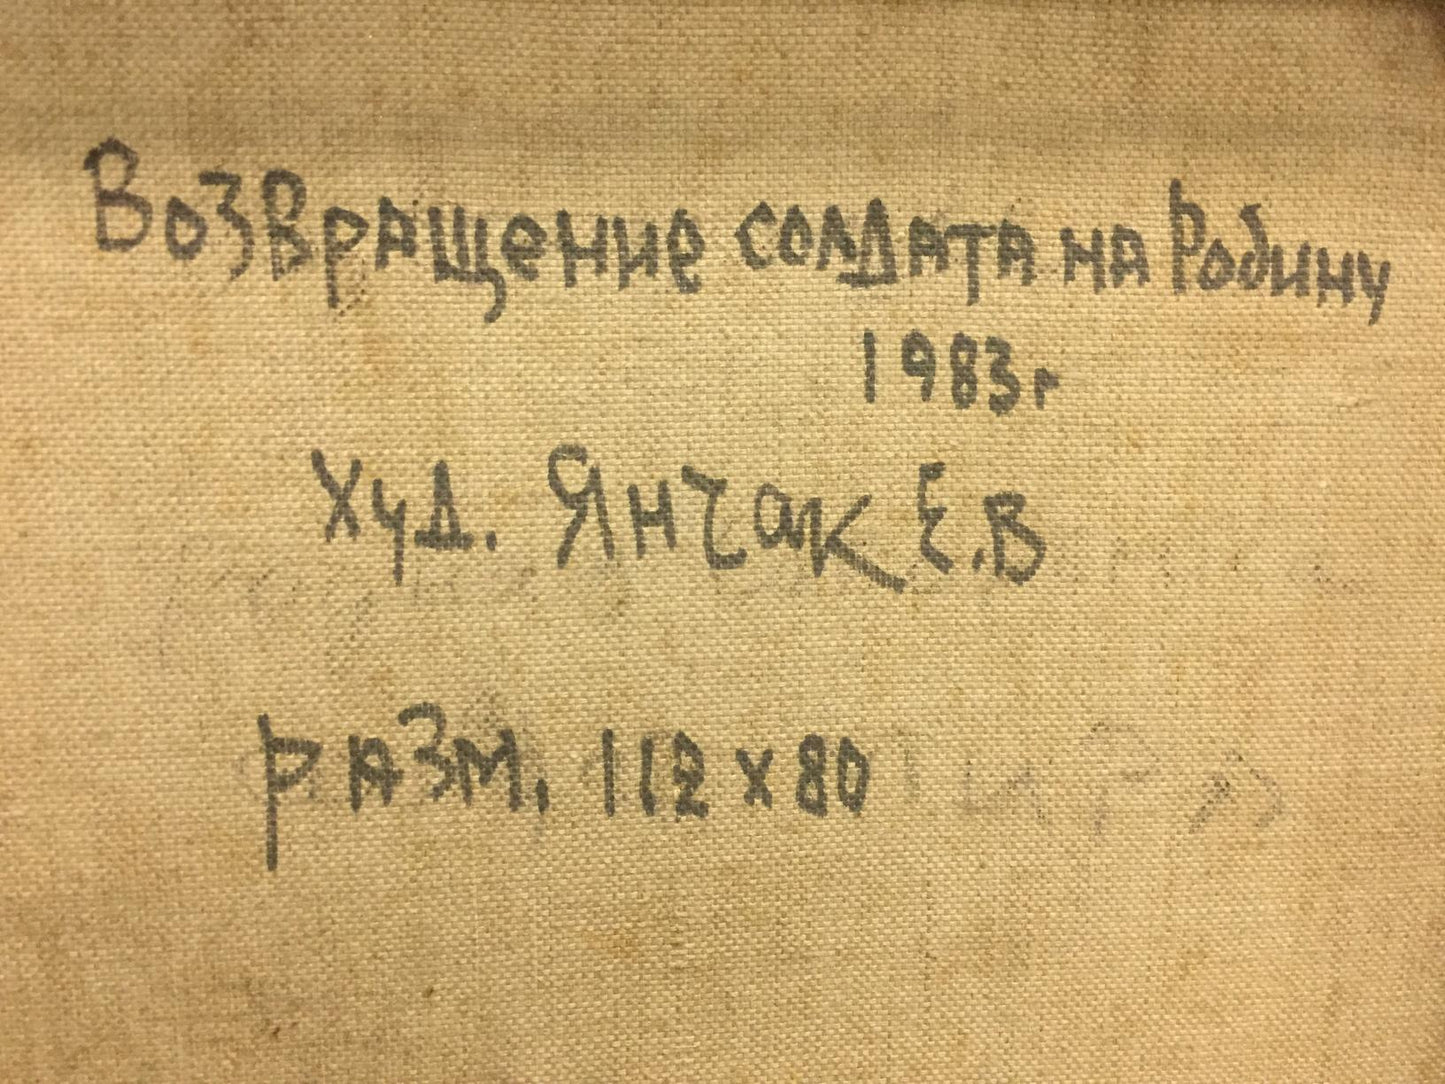 Возвращение солдата на Родину
1983г
Худ. Янчак Е.В
разм. 112 х 80